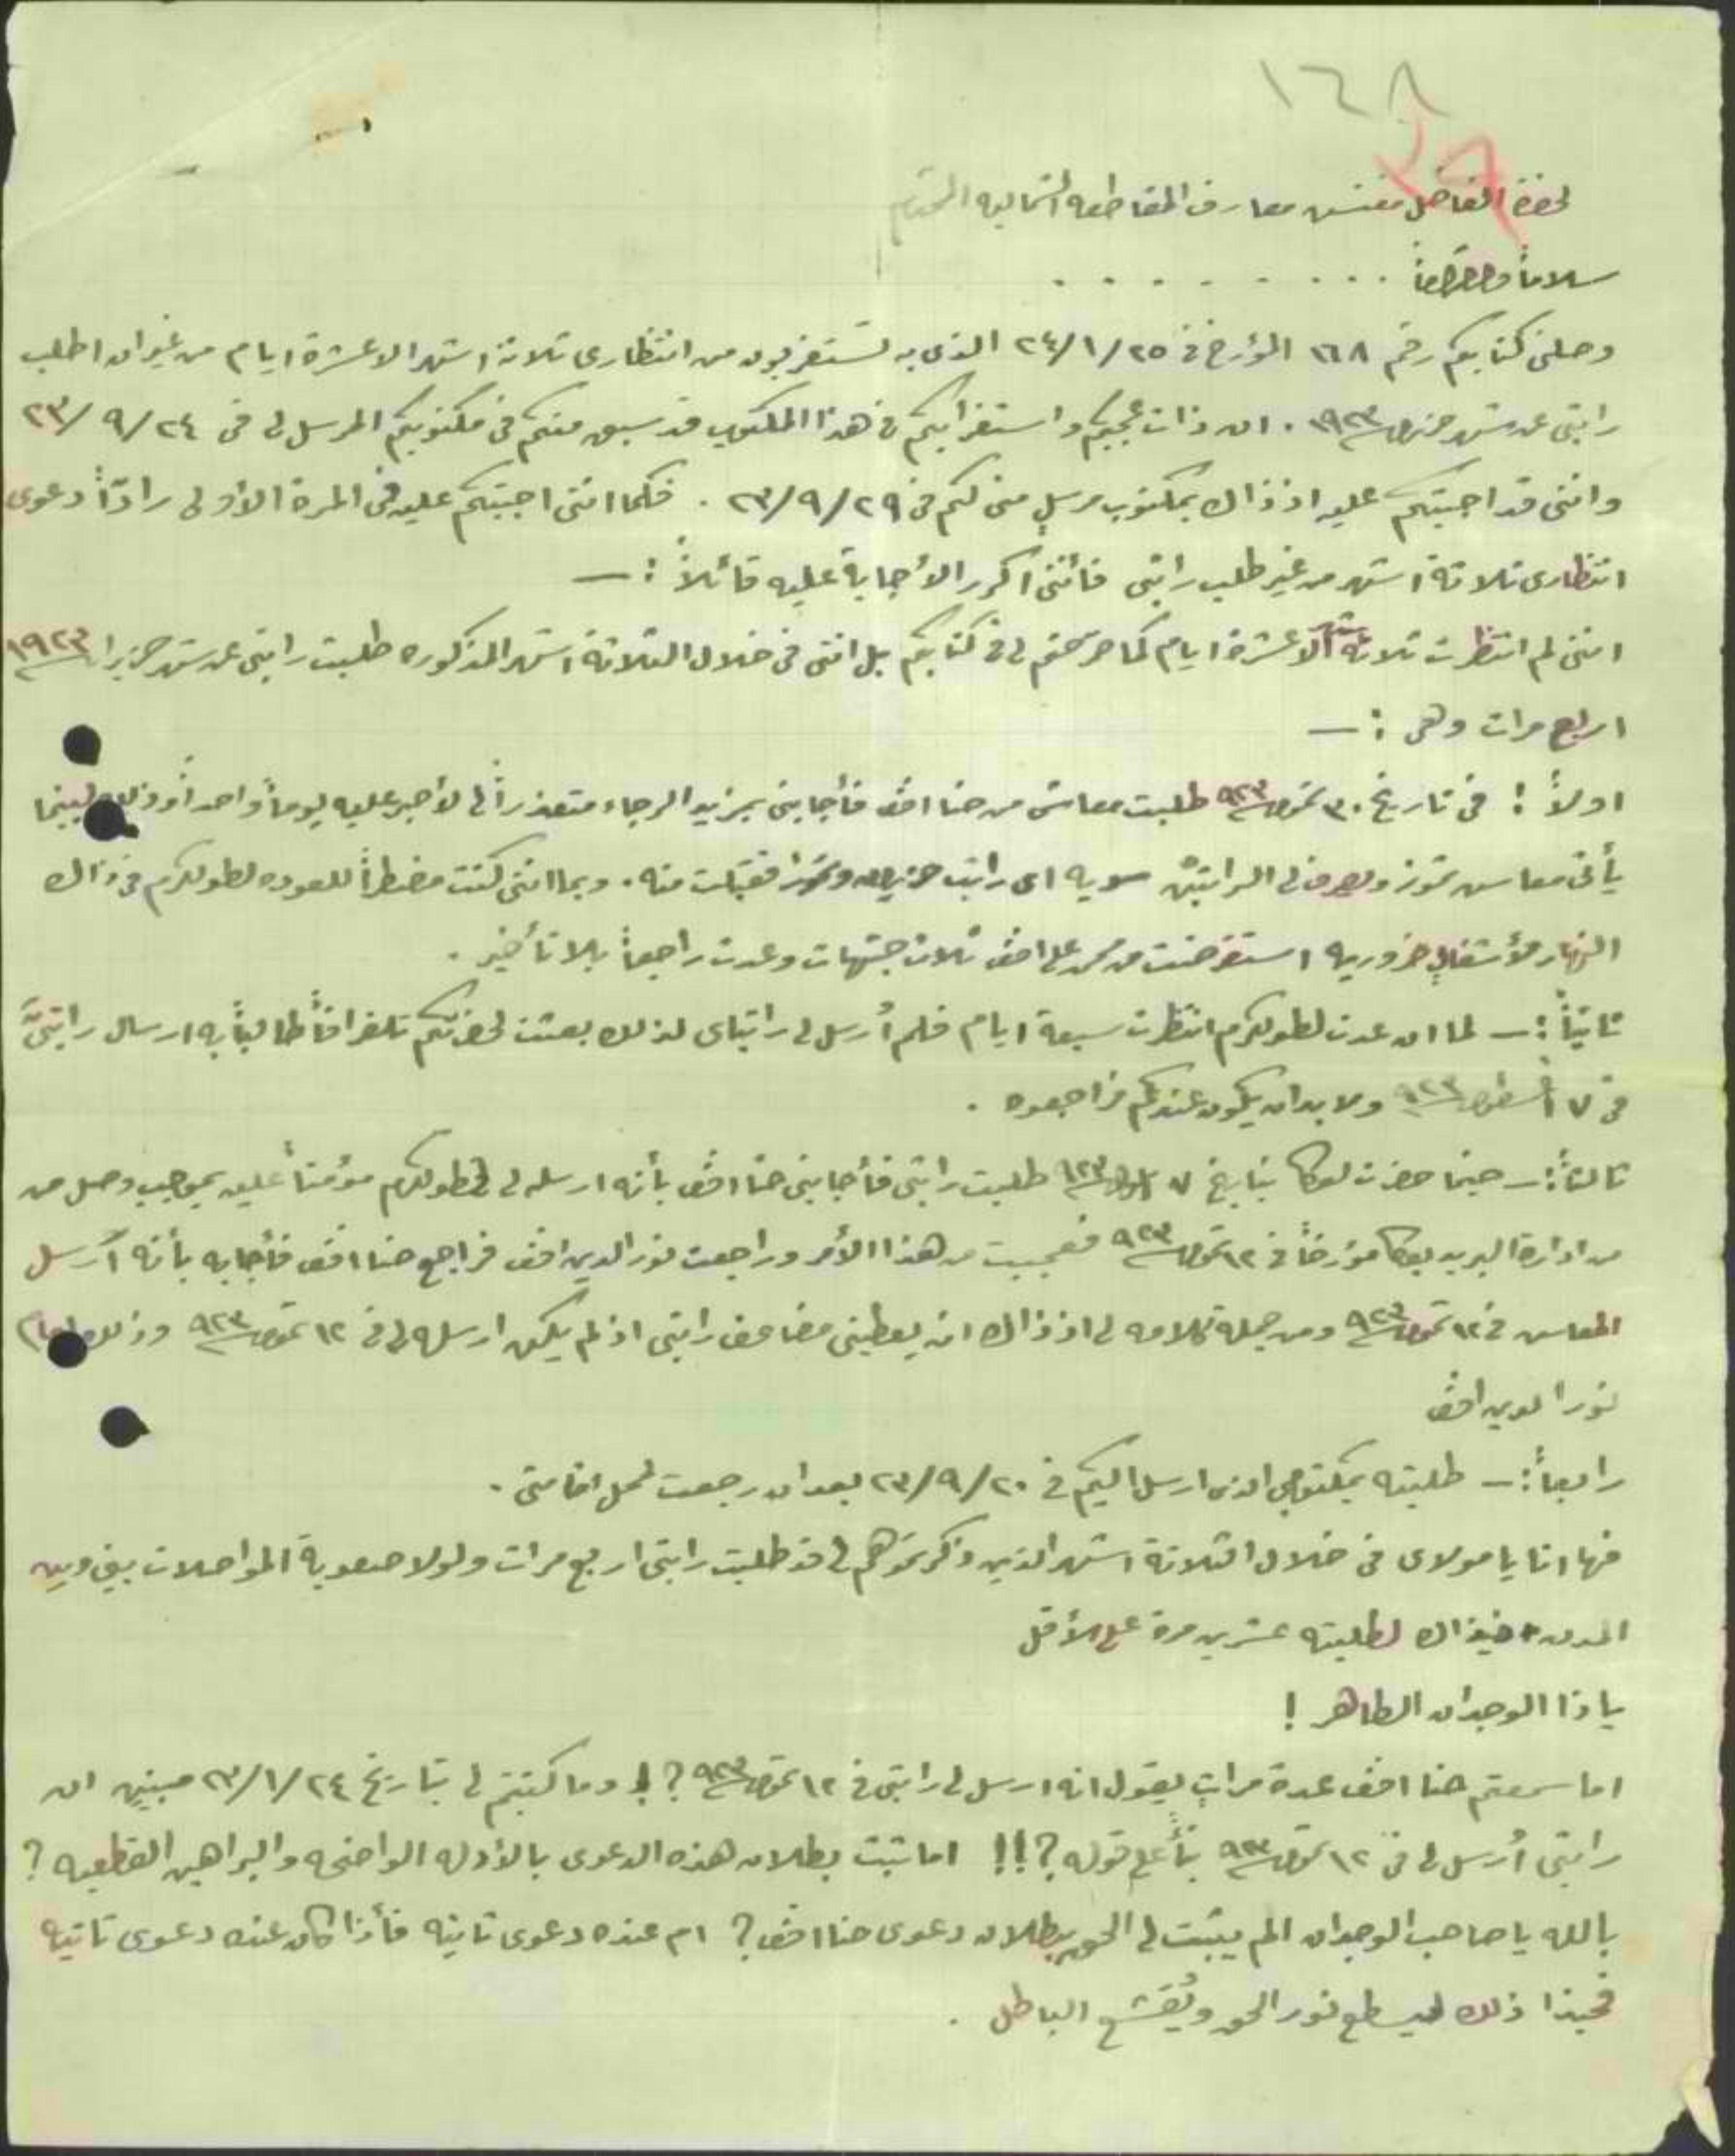 ١٦٨
لحضرة الفاضل مفتش معارف المقاطعه الشماليه المحترم
سلاماً واحتراماً . . . . . . . . .
وصلنى كتابكم رقم ١٦٨ المؤرخ فى ٢٤/١/٢٥ الذى به تستغربون من انتظارى ثلاثة اشهر الا عشرة ايام من غير ان اطلب
راتبى عن شهر حزيران ١٩٢٣ . ان ذات عجبكم واستغرابكم فى هذا المكتوب قد سبق منكم فى مكتوبكم المرسل لى فى ٢٤/٩/٢٣
واننى قد اجبتكم عليه اذ ذاك بمكتوب مرسل منى لكم فى ٢٣/٩/٢٩ . فكما اننى اجبتكم عليه فى المرة الأولى رادّاً دعوى
انتظارى ثلاثة اشهر من غير طلب راتبى فأننى اكرر الأجابة عليه قائلاً : —
اننى لم انتظرت ثلاثة اشهر الا عشرة ايام كما صرحتم لى فى كتابكم بل اننى فى خلال الثلاثة اشهر المذكوره طلبت راتبى عن شهر حزيران ١٩٢٣
اربع مرات وهى : —
اولاً : فى تاريخ ٣٠ تموز ٩٢٣ طلبت معاشى من حنا افندى فأجابنى بمزيد الرجاء متعذراً لى لأصبر عليه يوماً واحداً وذلك لبينما
يأتى معاش تموز ويصرف لى الراتبين سويه اى راتب حزيران وتموز فقبلت منه . وبما اننى كنت مضطراً للعوده لطولكرم فى ذاك
النهار لأشغال ضروريه استقرضت من محمد على افندى ثلاث جنيهات وعدت راجعاً بلا تأخير .
ثانياً : — لما ان عدت لطولكرم انتظرت سبعة ايام فلم أُرسل لى راتباى لذلك بعثت لحضرتكم تلغرافاً طالباً به ارسال راتبىَّ
فى ٧ أغسطس ٩٢٣ ولا بد ان يكون عندكم فراجعوه .
ثالثاً : — حينما حضرت لعكا بتاريخ ٧ ٩٢٣ طلبت راتبى فأجابنى حنا افندى بأنه ارسله لى لطولكرم مؤمناً عليه بموجب وصل من
من ادارة البريد بعكا مؤرخاً فى ١٢ تموز ٩٢٣ فعجبت من هذا الأمر وراجعت نور الدين افندى فراجع حنا افندى فأجابه بأنه أرسل
المعاش فى ١٢ تموز ٩٢٣ ومن جملة كلامه لى اذ ذاك ان يعطينى مضاعف راتبى اذ لم يكن ارسله لى فى ١٢ تموز ٩٢٣ وذلك امام
نور الدين افندى
رابعاً : — طلبته بمكتوبى الذى ارسل اليكم فى ٢٣/٩/٢٠ بعد ان رجعت لمحل اقامتى .
فها انا يا مولاى فى خلال الثلاثة اشهر الذين ذكرتموهم لى قد طلبت راتبى اربع مرات ولولا صعوبة المواصلات بينى وبين
المدن حينذاك لطلبته عشرين مرة على الأقل
يا ذا الوجدان الطاهر !
اما سمعتم حنا افندى عدة مراتٍ يقول انه ارسل لى راتبى فى ١٢ تموز ٩٢٣ ؟! وما كتبتم لى بتاريخ ٢٣/١/٢٤ مبينين ان
راتبى أُرسل لى فى ١٢ تموز ٩٢٣ بناًء على قوله ؟!! اما ثبت بطلان هذه الدعوى بالأدله الواضحه والبراهين القطعيه ؟
بالله يا صاحب الوجدان الم يثبت لى الحق ببطلان دعوى حنا افندى ؟ ام عنده دعوى ثانيه فأذا كان عنده دعوى ثانيه
فحبذا ذلك ليسطع نور الحق ويُقشع الباطل .